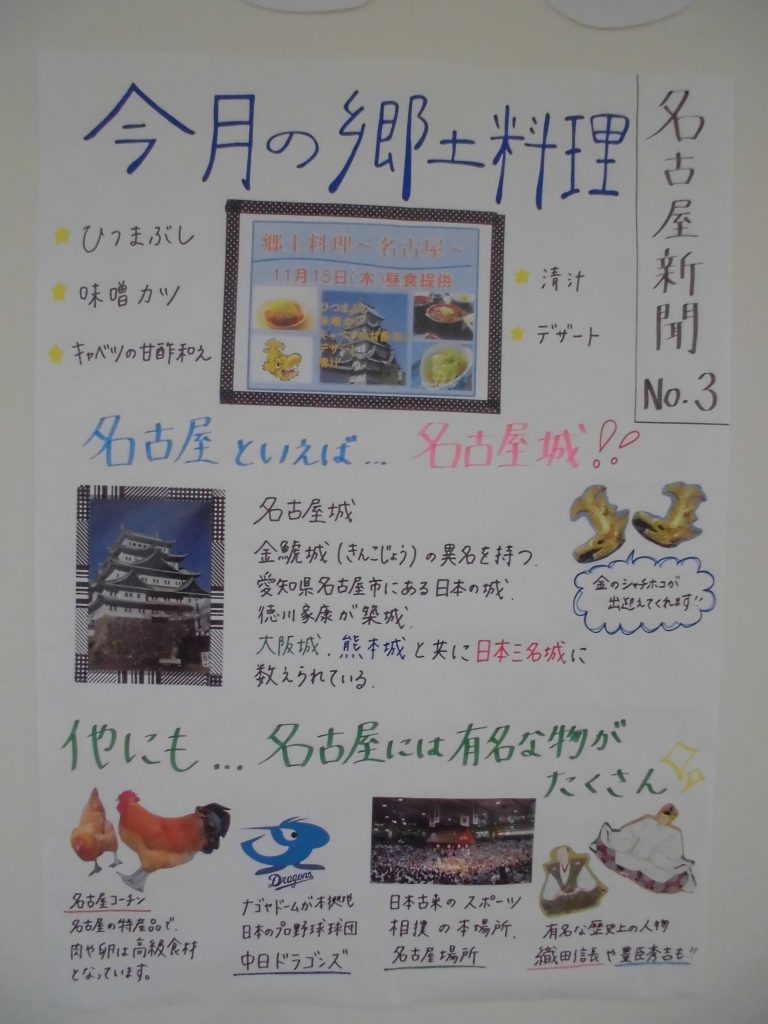 今月の郷土料理
名古屋新聞
No.3
ひつまぶし
味噌カツ
キャベツの甘酢和え
郷土料理～名古屋～
11月15日(木)昼食提供
ひつまぶし
味噌カツ
キャベツの甘酢和え
デザート
清汁
清汁
デザート
名古屋といえば… 名古屋城!!
名古屋城
金鯱城(きんこじょう)の異名を持つ、
愛知県名古屋市にある日本の城。
徳川家康が築城。
大阪城、熊本城と共に日本三名城に
数えられている。
金のシャチホコが
出迎えてくれます!!
他にも…名古屋には有名な物が
たくさん
名古屋コーチン
名古屋の特産品で、
肉や卵は高級食材
となっています。
Dragons
ナゴヤドームが本拠地
日本のプロ野球球団
中日ドラゴンズ
日本古来のスポーツ
相撲の本場所、
名古屋場所
有名な歴史上の人物
織田信長や豊臣秀吉も!!